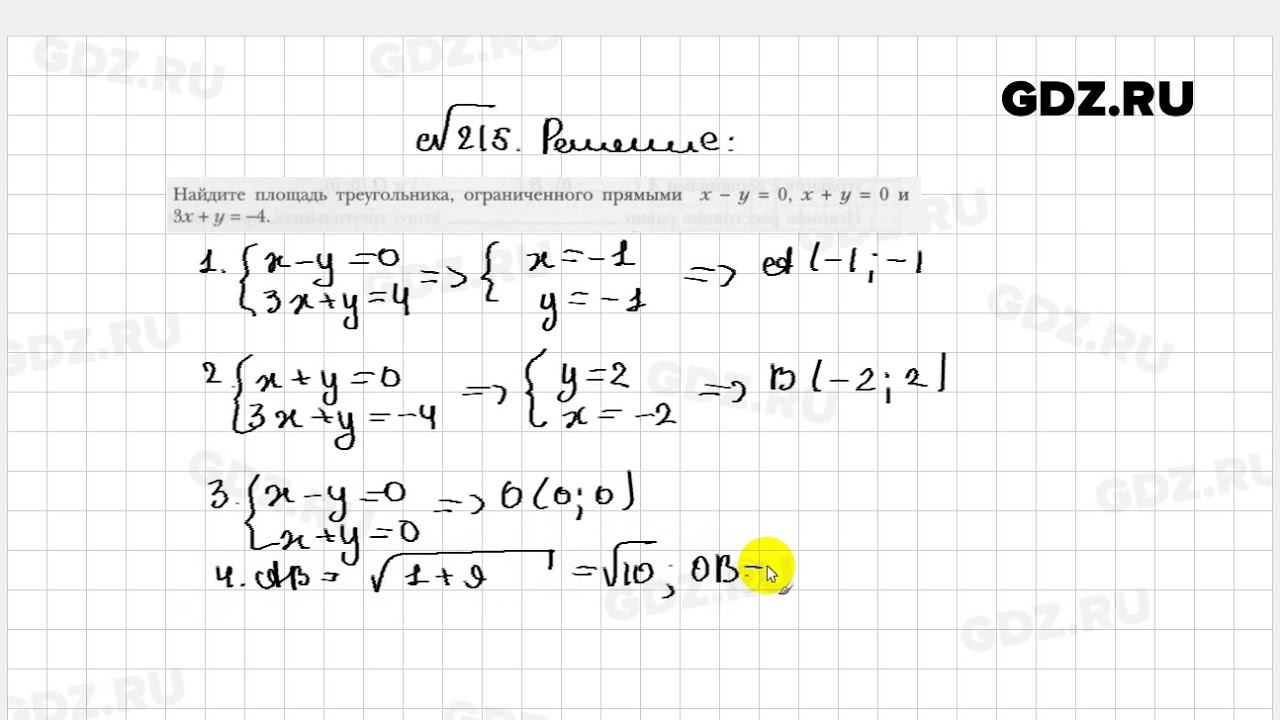 GDZ.RU
№215. Решение:
Найдите площадь треугольника, ограниченного прямыми x – y = 0, x + y = 0 и
3x + y = –4.
1. { x-y=0 3x+y=4 => { x=-1 y=-1 => A(-1;-1
2. { x+y=0 3x+y=-4 => { y=2 x=-2 => B(-2;2)
3. { x-y=0 x+y=0 => O(0;0)
4. AB = √1+9 = √10; OB=